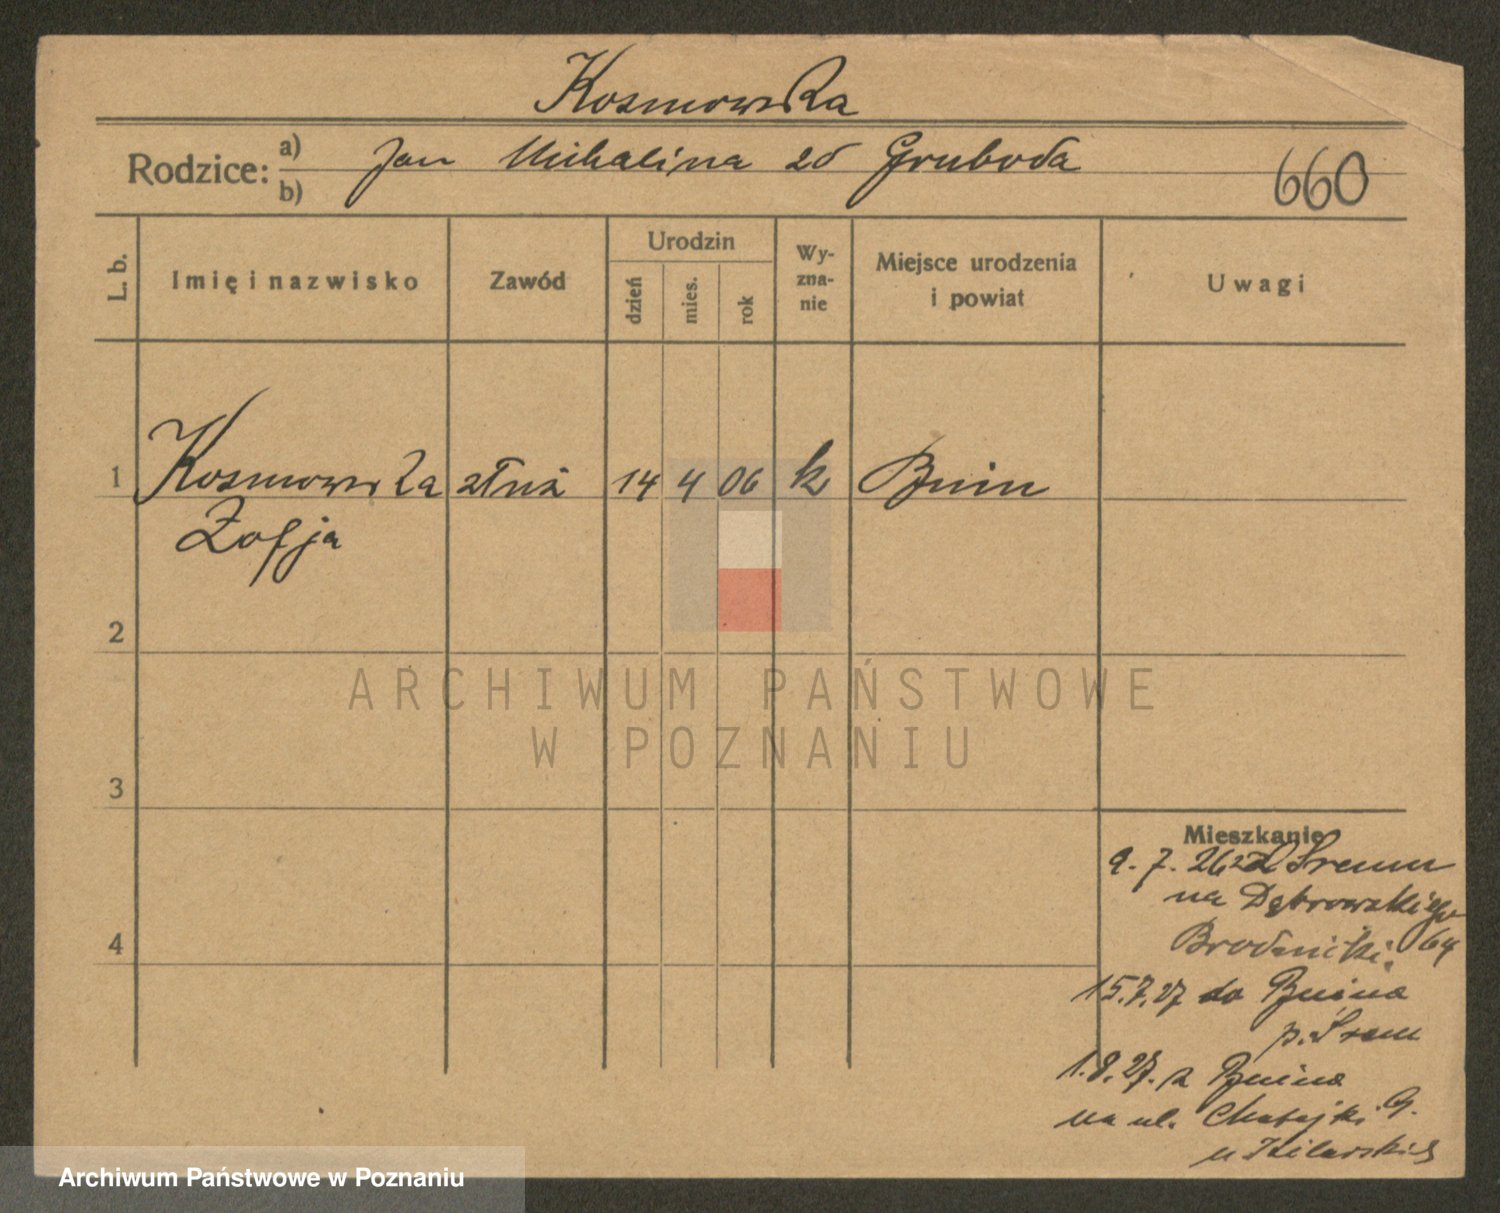 Kosmowska
Rodzice: a) b) Jan Michalina zd Gruboda
660
L. b.
Imię i nazwisko
Zawód
Urodzin
dzień
mies.
rok
Wy-
zna-
nie
Miejsce urodzenia
i powiat
Uwagi
1 Kosmowska służ 14 4 06 k Bnin
Zofja
2
3
4
Mieszkanie
9. 7. 26 z Śremu
na Dąbrowskiego
64
15.7.27 do Bnina
p. Śrem
1.8.27. z Bnina
na ul. Matejki 9.
u
ARCHIWUM PAŃSTWOWE
W POZNANIU
Archiwum Państwowe w Poznaniu